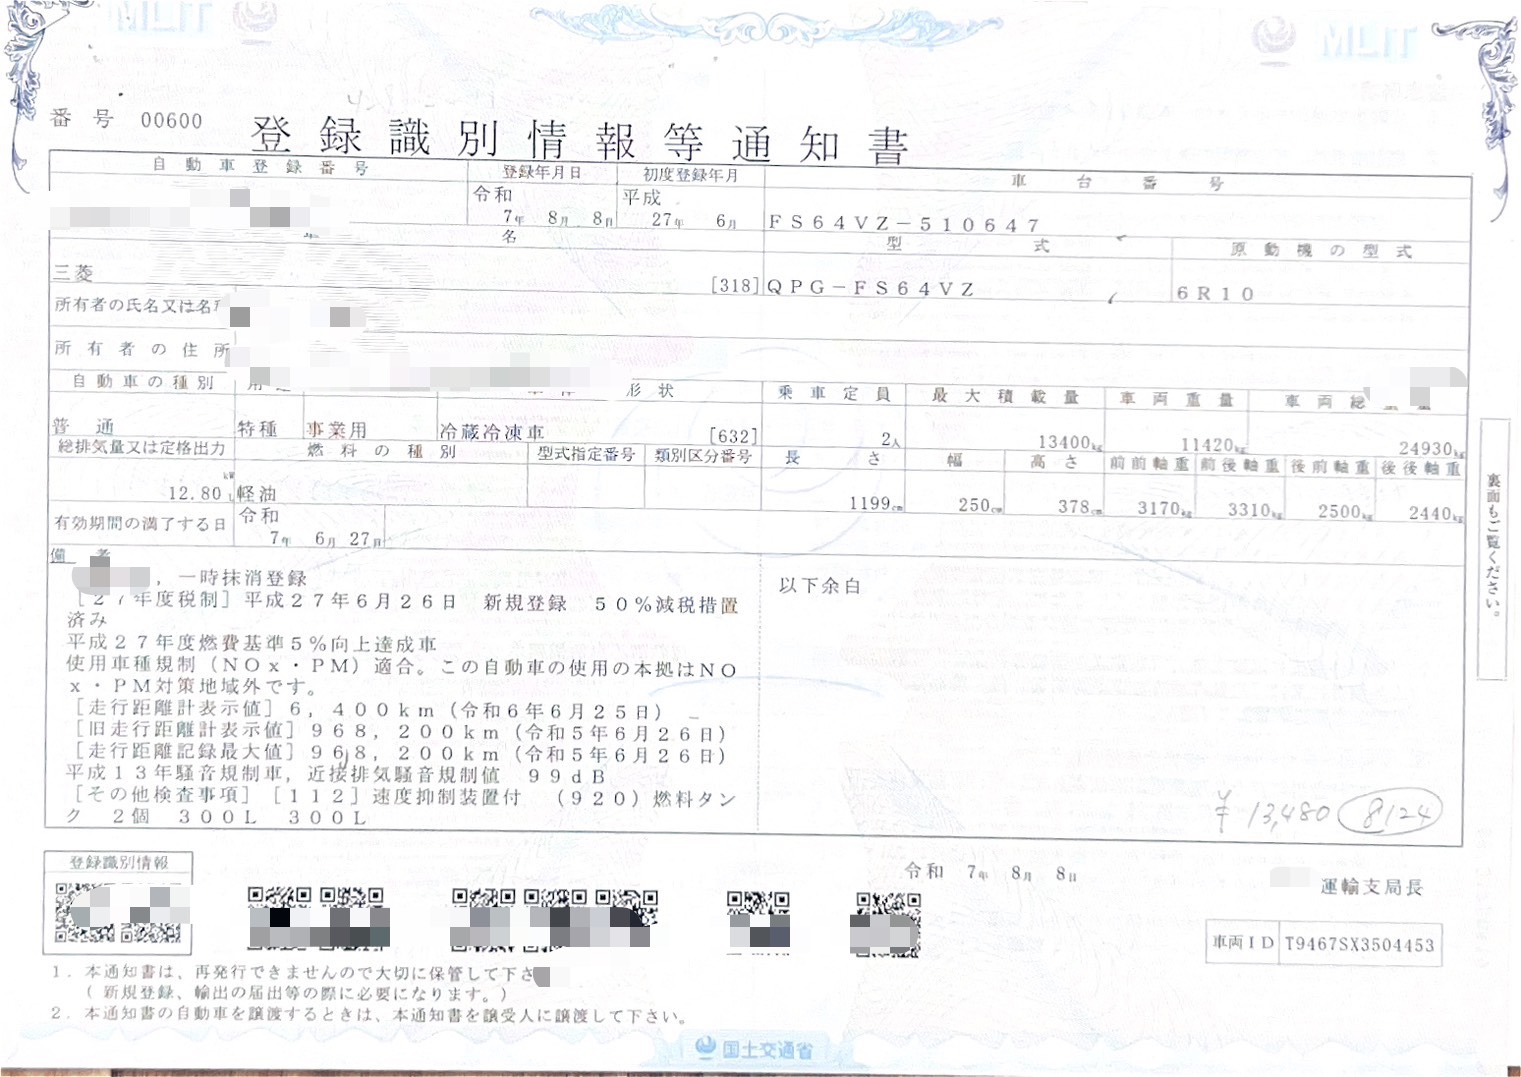 MLIT
MLIT
番号 00600
登録識別情報等通知書
自動車登録番号 登録年月日 初度登録年月 車台番号
令和 平成
7年 8月 8日 27年 6月 FS64VZ-510647
名 型式 原動機の型式
三菱 [318] QPG-FS64VZ 6R10
所有者の氏名又は名
所有者の住所
自動車の種別 形状 乗車定員 最大積載量 車両重量 車両総
普通 特種 事業用 冷蔵冷凍車 [632] 2人 13400kg 11420kg 24930kg
総排気量又は定格出力 燃料の種別 型式指定番号 類別区分番号 長さ 幅 高さ 前前軸重 前後軸重 後前軸重 後後軸重
kW
12.80L 軽油 1199cm 250cm 378cm 3170kg 3310kg 2500kg 2440kg
有効期間の満了する日 令和
7年 6月 27日
備考
，一時抹消登録 以下余白
[27年度税制] 平成27年6月26日 新規登録 50%減税措置
済み
平成27年度燃費基準5%向上達成車
使用車種規制（NOx・PM）適合。この自動車の使用の本拠はNO
x・PM対策地域外です。
[走行距離計表示値] 6，400km（令和6年6月25日）
[旧走行距離計表示値] 968，200km（令和5年6月26日）
[走行距離記録最大値] 968，200km（令和5年6月26日）
平成13年騒音規制車，近接排気騒音規制値 99dB
[その他検査事項] [112] 速度抑制装置付 （920）燃料タン
ク 2個 300L 300L
¥-13,480 8124
裏面もご覧ください。
登録識別情報
令和 7年 8月 8日
運輸支局長
車両ID T9467SX3504453
1．本通知書は、再発行できませんので大切に保管して下さ
（新規登録、輸出の届出等の際に必要になります。）
2．本通知書の自動車を譲渡するときは、本通知書を譲受人に譲渡して下さい。
国土交通省